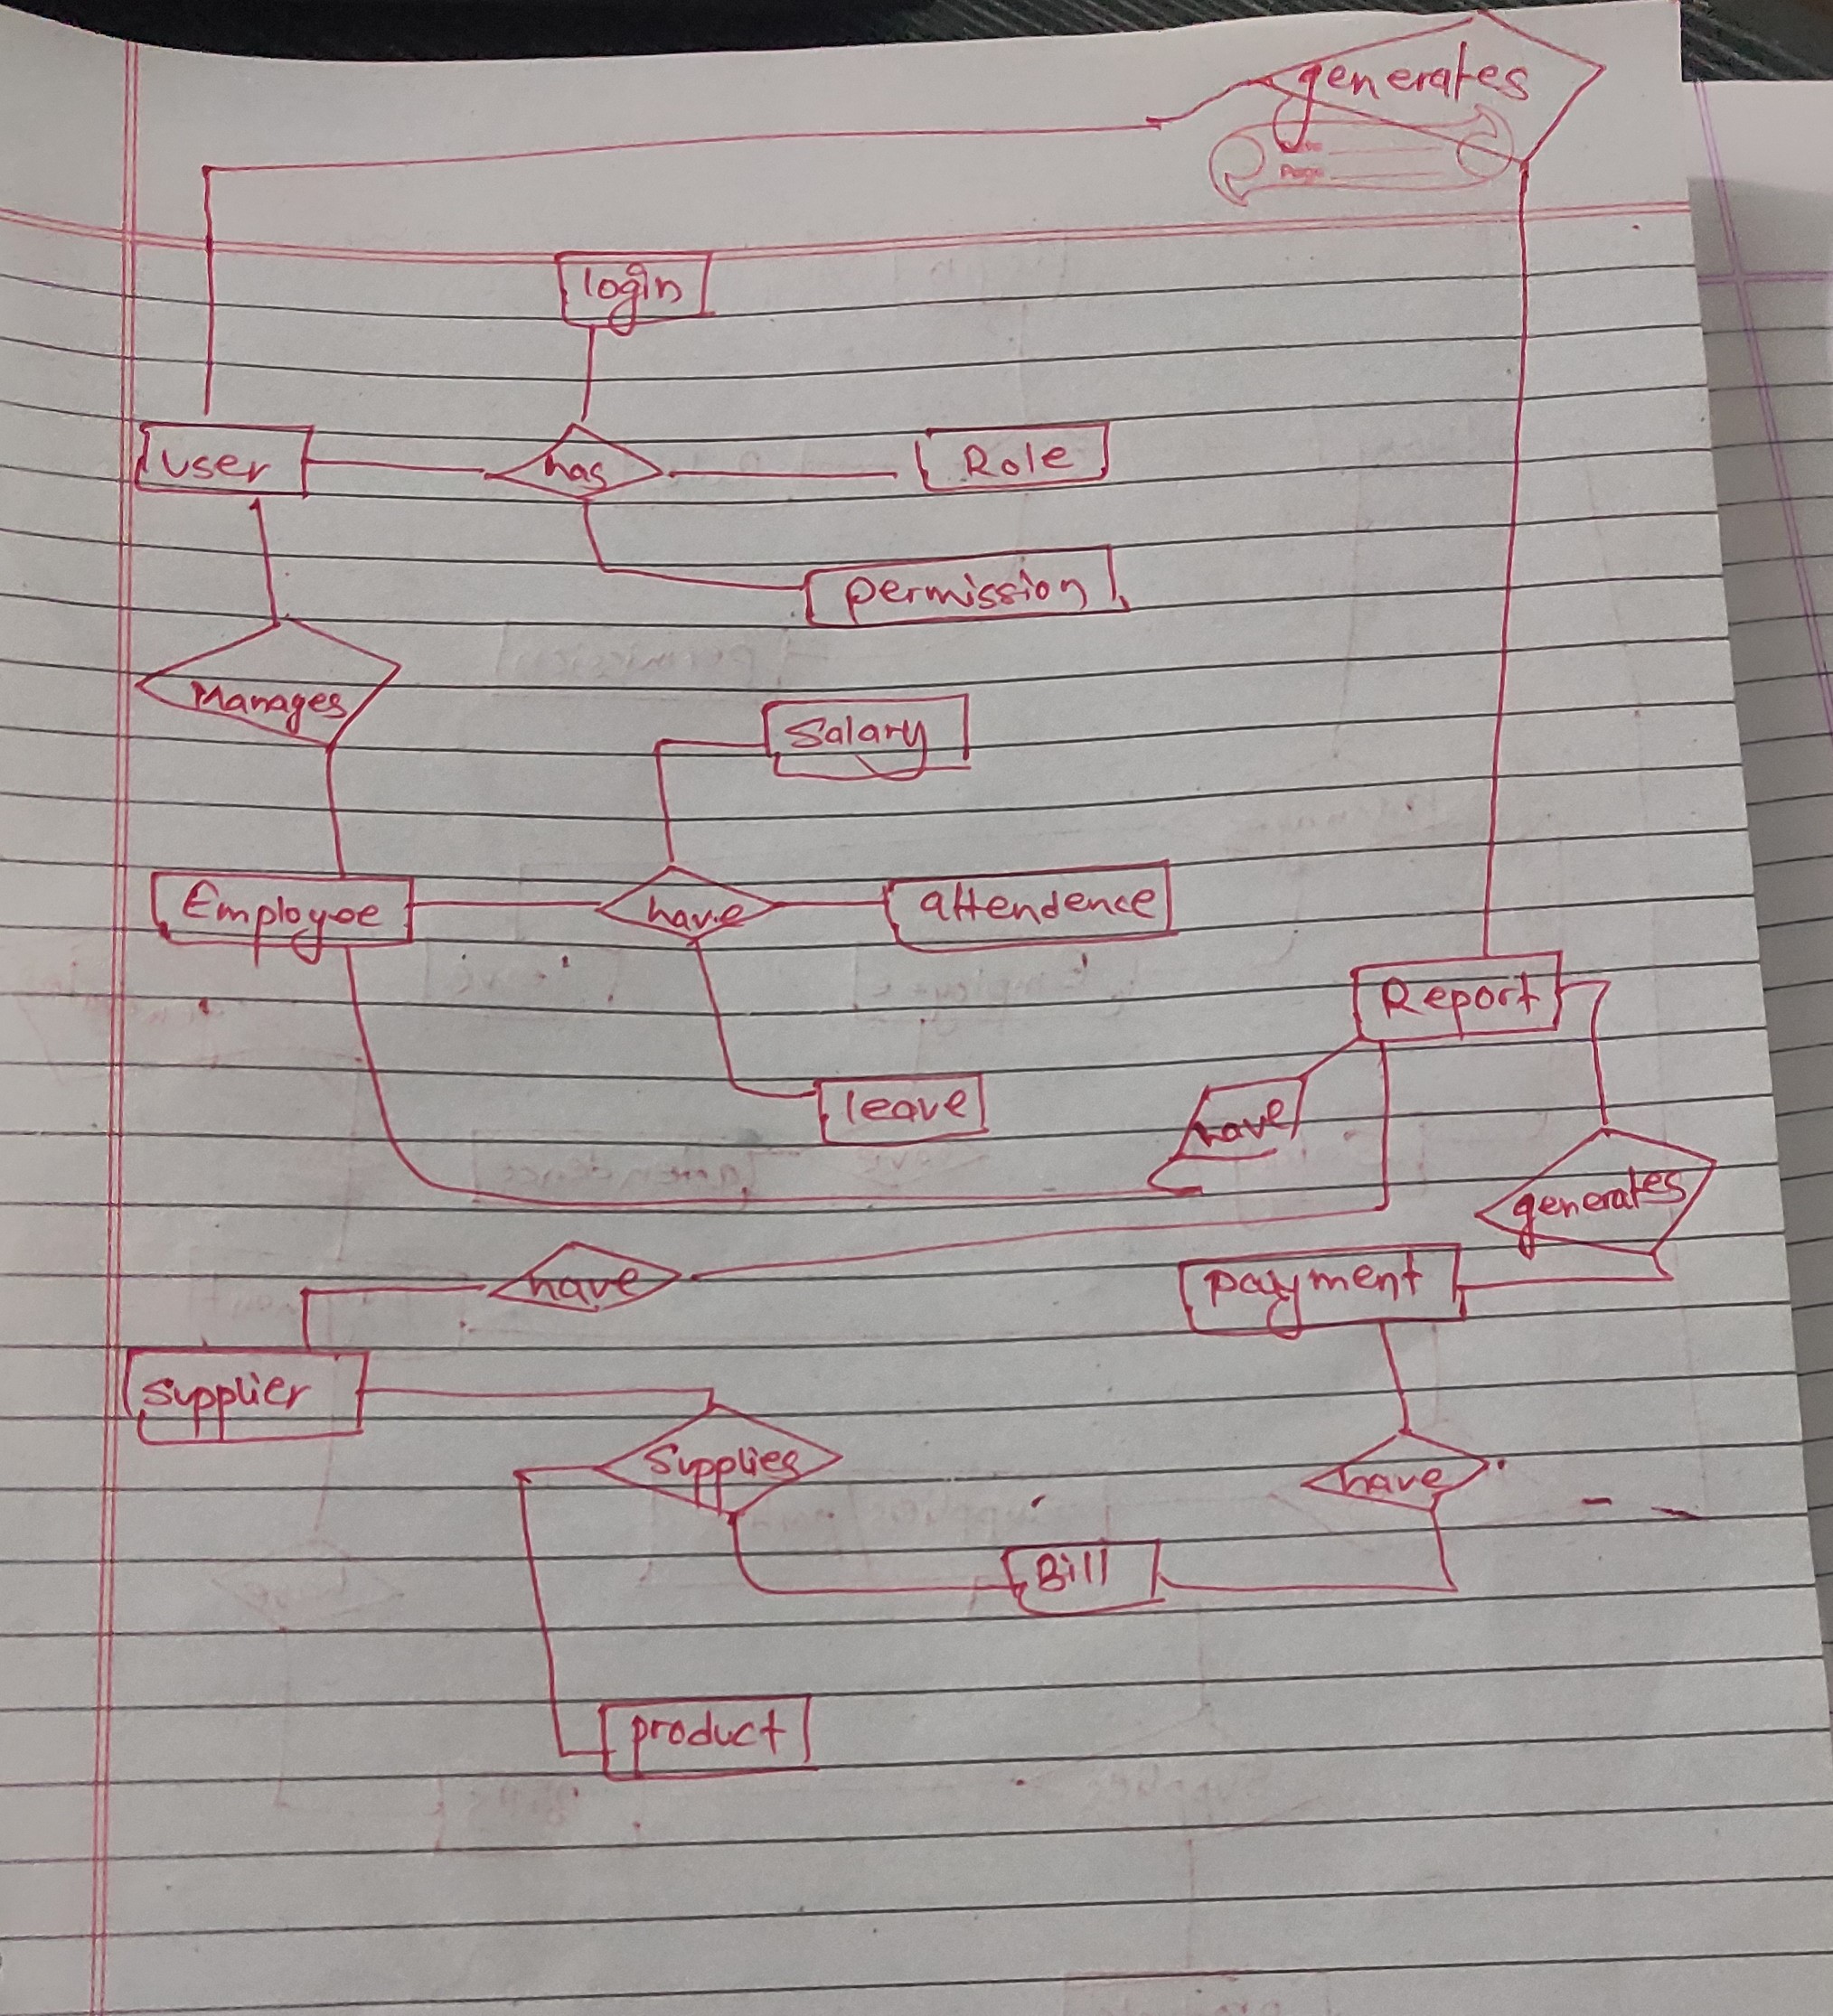 generates
Page
login
user
has
Role
permission
Manages
Salary
Employee
have
attendence
Report
leave
have
generates
have
payment
supplier
Supplies
have
Bill
product